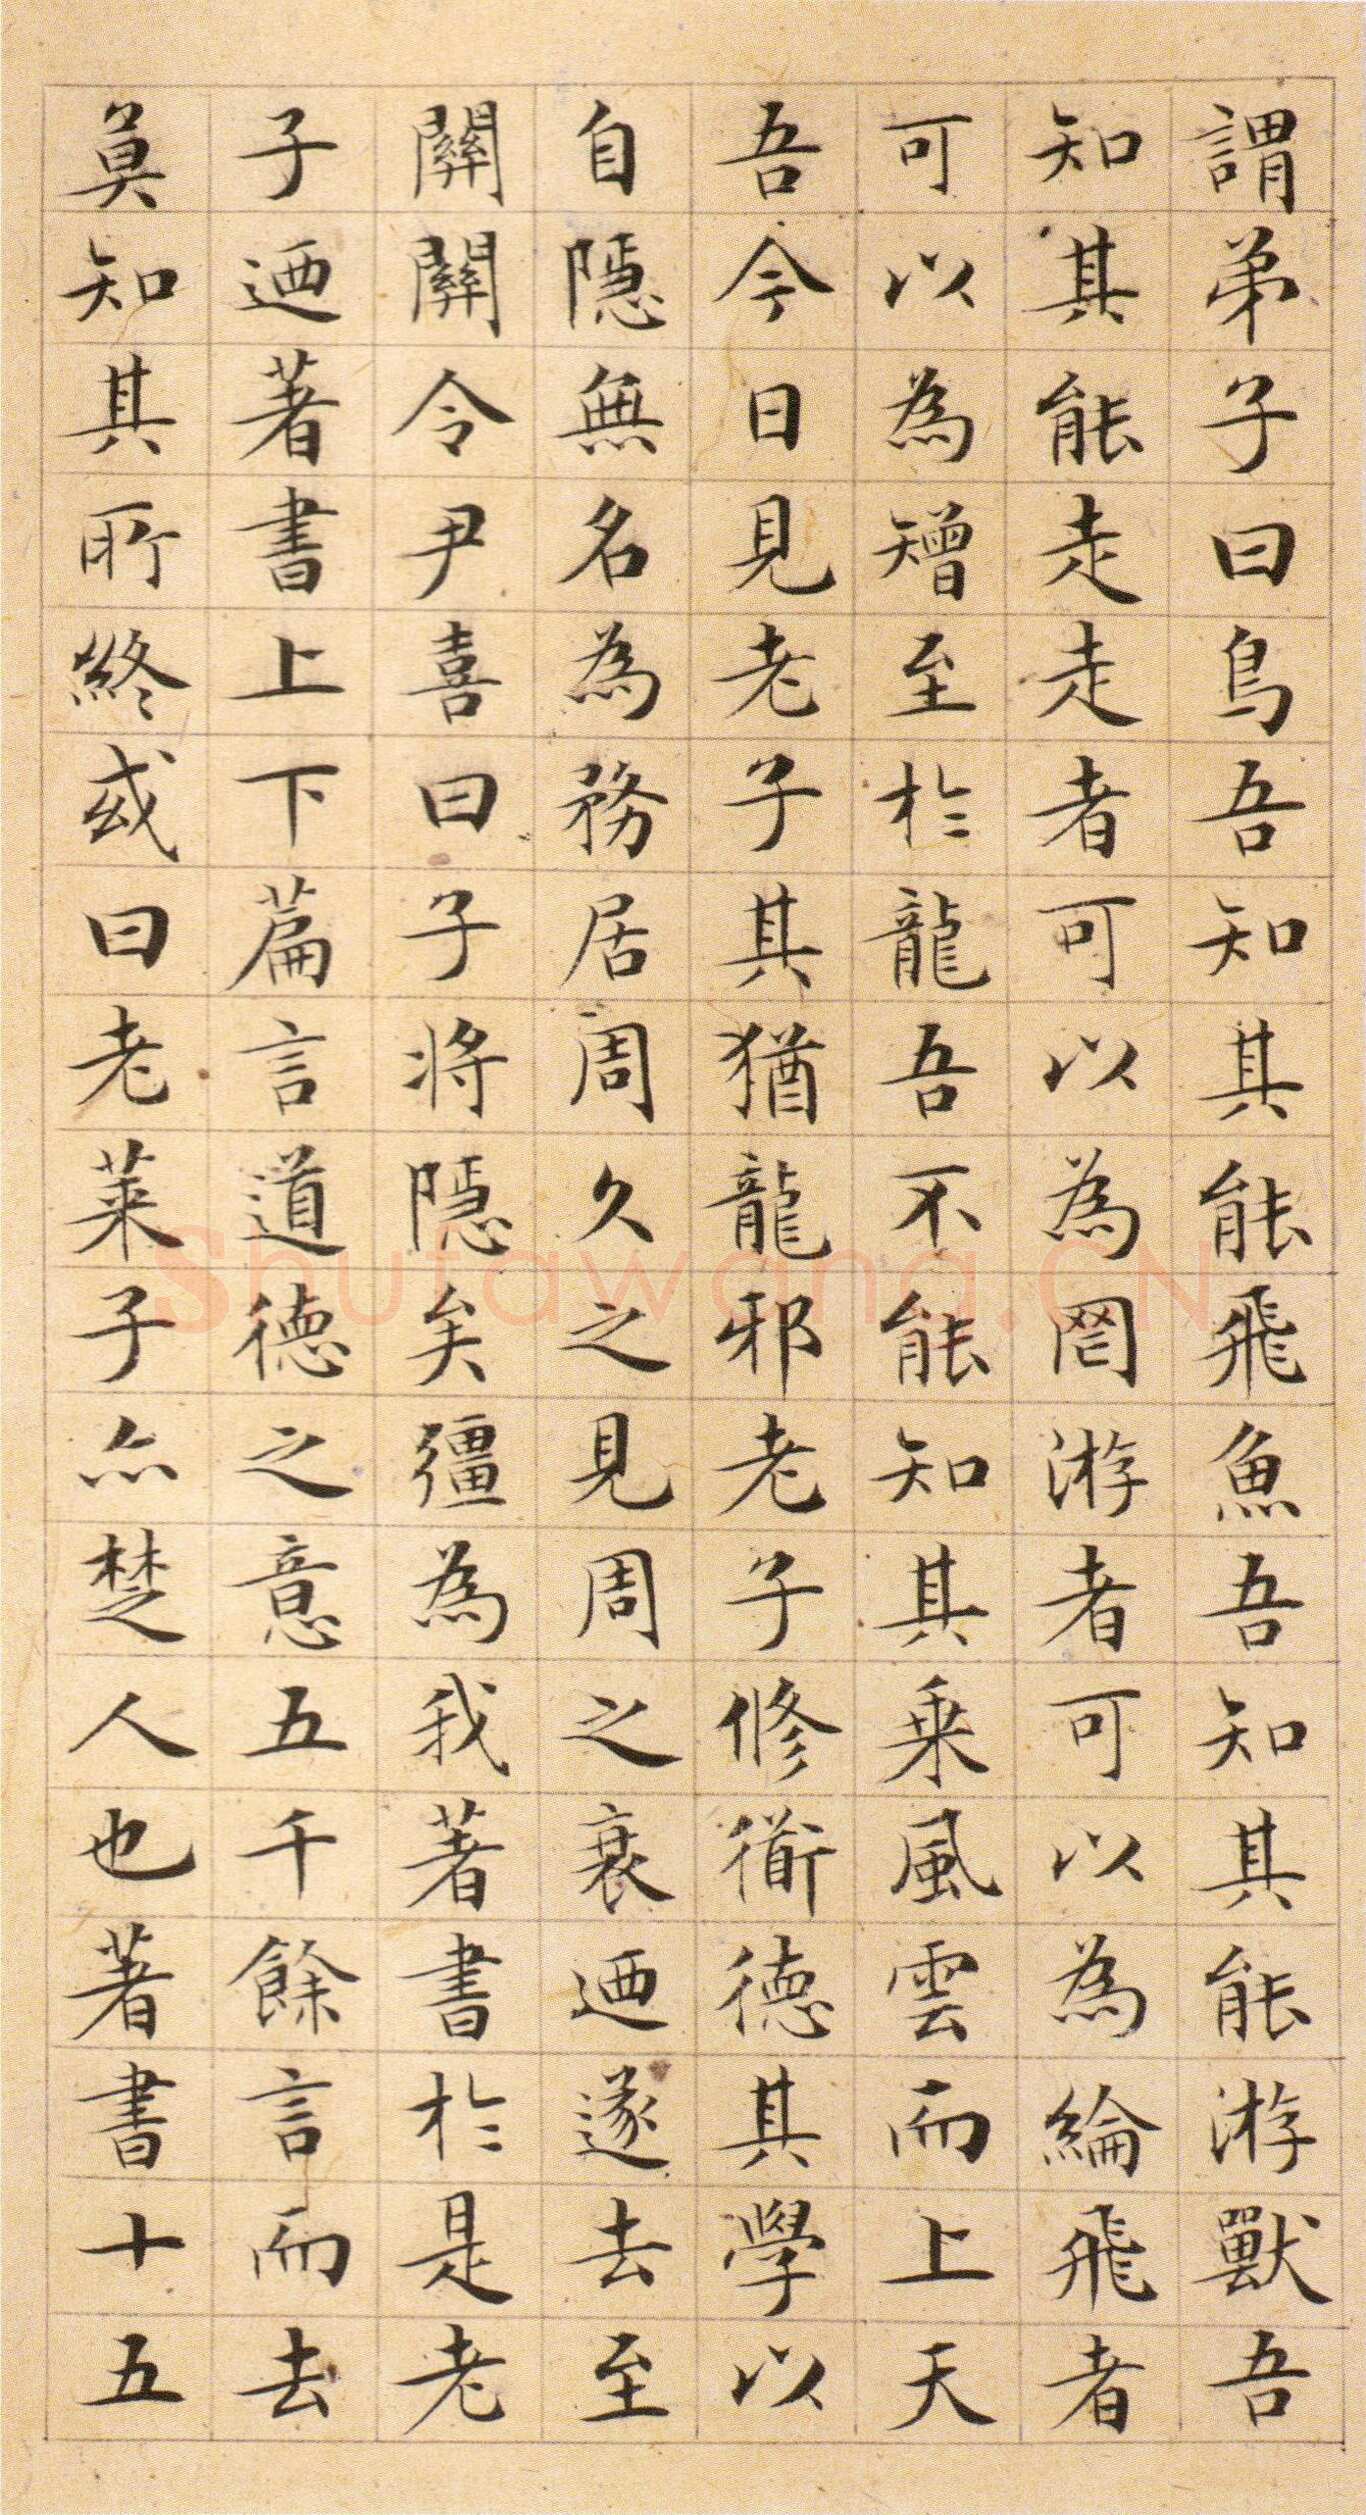 謂弟子曰鳥吾知其能飛魚吾知其能游獸吾
知其能走走者可以為罔游者可以為綸飛者
可以為矰至於龍吾不能知其乗風雲而上天
吾今日見老子其猶龍邪老子修衜德其學以
自隱無名為務居周久之見周之衰迺遂去至
關關令尹喜曰子將隱矣彊為我著書於是老
子迺著書上下篇言道德之意五千餘言而去
莫知其所終或曰老萊子亦楚人也著書十五
Shufawang.CN